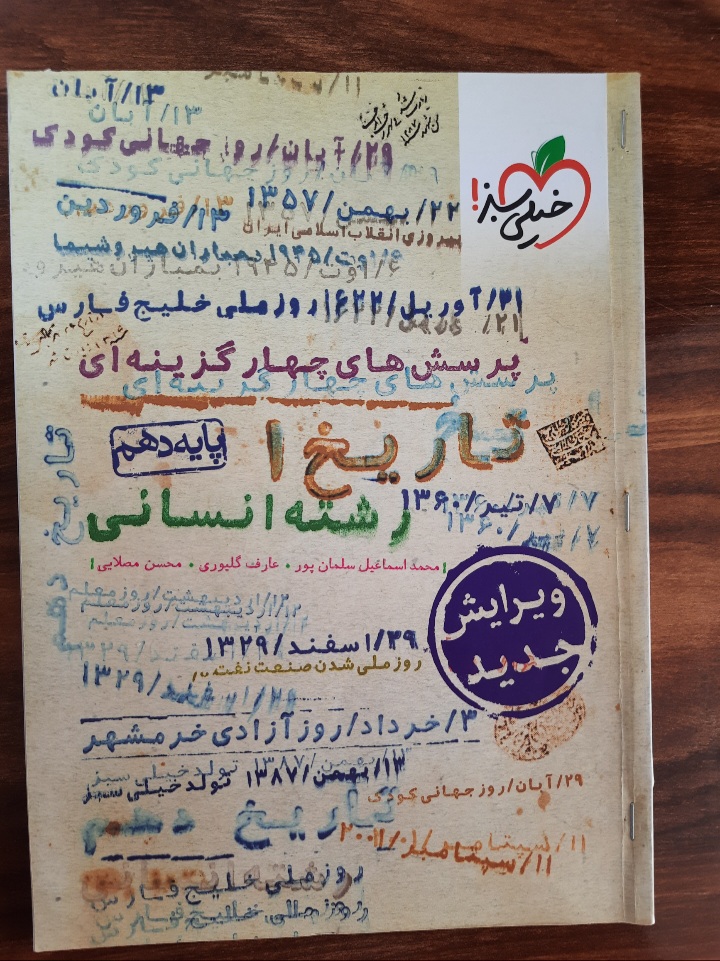 ۱۱/سپتامبر
۱۳/آبان
۱۳/آبان
خیلی سبز!
۲۹/آبان/روز جهانی کودک
روز جهانی کودک
۲۲/بهمن/۱۳۵۷
۱۳/فروردین
پیروزی انقلاب اسلامی ایران
۶/اوت/۱۹۴۵ بمباران هیروشیما
۶/اوت/۱۹۴۵ بمباران هیرو
۳۱/آوریل/۱۶۲۲ روز ملی خلیج فارس
۲۱/
پرسش‌های چهارگزینه‌ای
پرسش‌های چهارگزینه‌ای
تاریخ ۱
پایه دهم
تاریخ دهم
۷/تیر/۱۳۶۰
۷/تیر/۱۳۶۰
رشته انسانی
محمد اسماعیل سلمان پور • عارف گلیوری • محسن مصلایی
ویرایش جدید
۱۲/اردیبهشت/روز معلم
۱۲/اردیبهشت/روز معلم
۱۲/اردیبهشت/روز معلم
۲۹/اسفند/۱۳۲۹
روز ملی شدن صنعت نفت
۲۹/اسفند/۱۳۲۹
۳/خرداد/روز آزادی خرمشهر
بهمن/۱۳۸۷ تولد خیلی سبز
۱۳/بهمن/۱۳۸۷ تولد خیلی سبز
۲۹/آبان/روز جهانی کودک
تاریخ دهم
۱۱/سپتامبر
۱۱/سپتامبر/۲۰۰۱
رشته انسانی
روز ملی خلیج فارس
روز ملی خلیج فارس